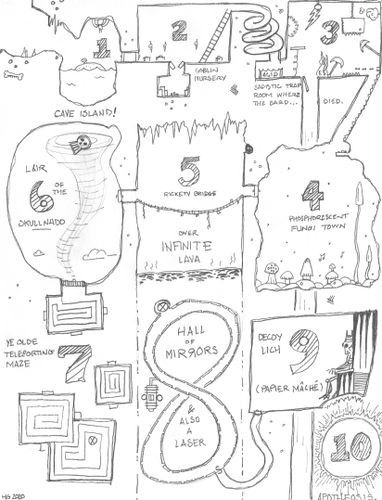 1
CAVE ISLAND!
2
GOBLIN
NURSERY
ACID
3
SADISTIC TRAP
ROOM WHERE
THE BARD...
DIED.
4
PHOSPHORESCENT
FUNGI TOWN
5
RICKETY BRIDGE
OVER
INFINITE
LAVA
LAIR
6
OF
THE
SKULLNADO
YE OLDE
TELEPORTING
MAZE
7
HALL
OF
MIRRORS
8
& ALSO
A
LASER
DECOY
LICH
9
(PAPIER MÂCHÉ)
10
APOTHEOSIS
2020